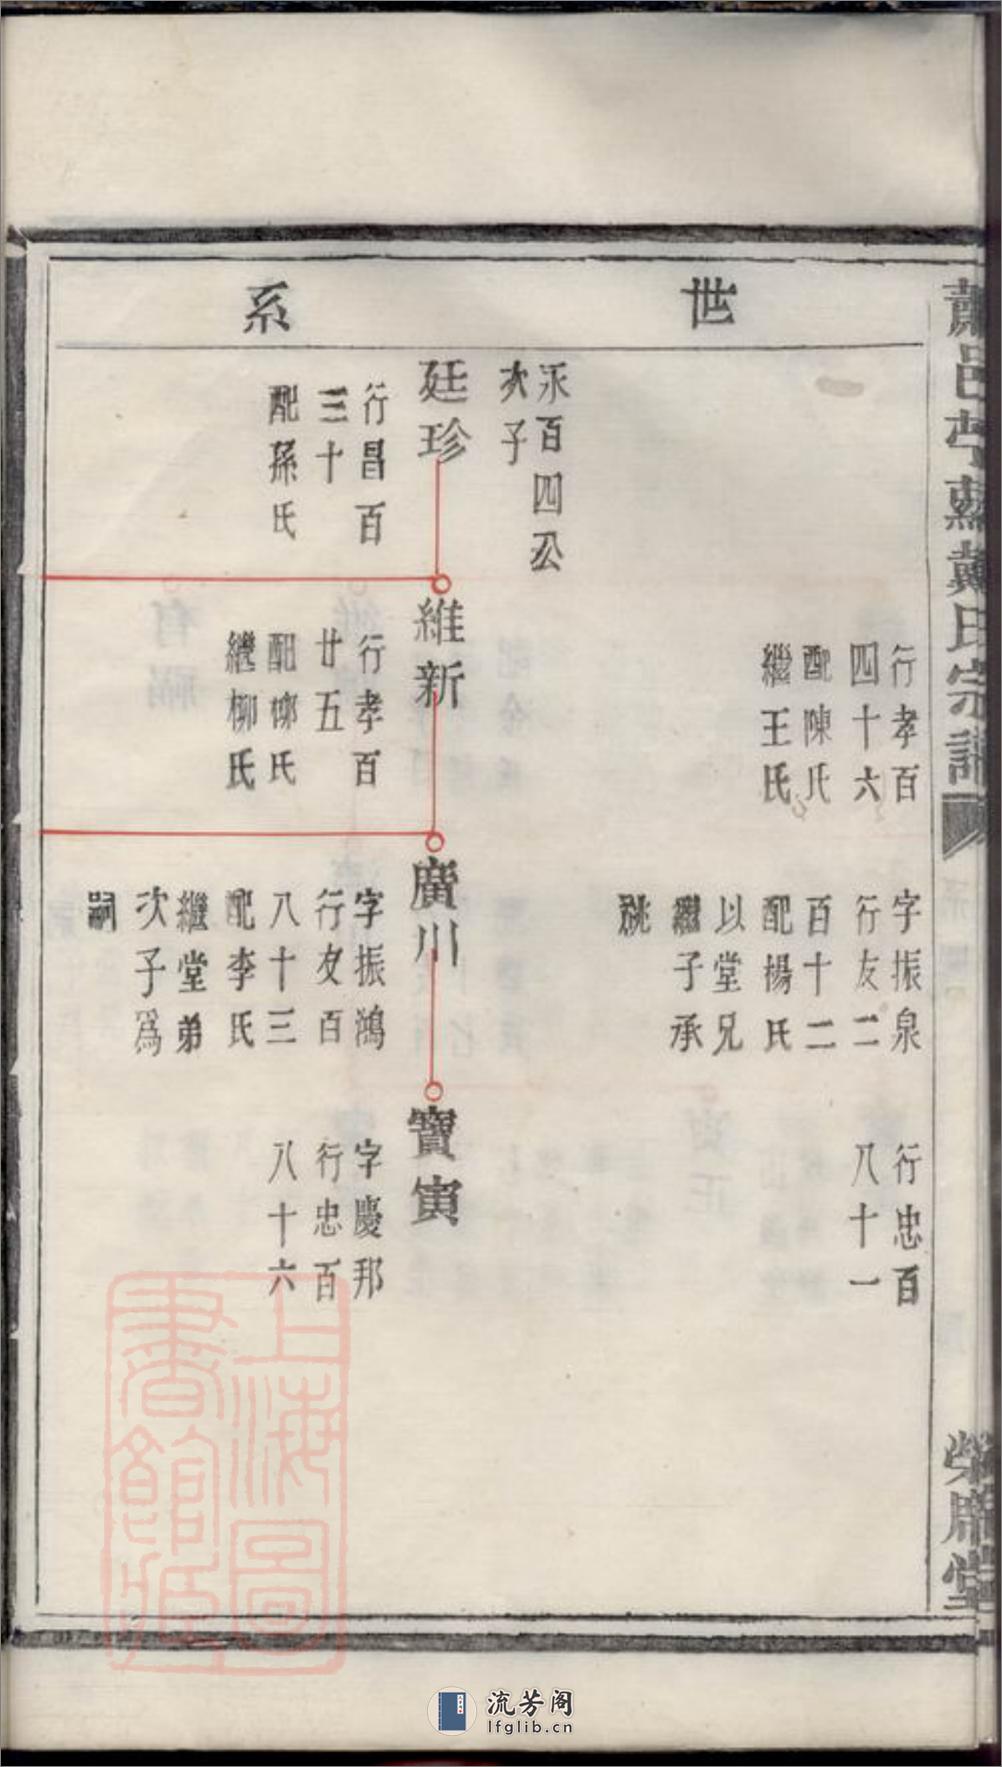 世
系
行孝百
四十六
配陳氏
繼王氏
字振泉
行友二
百十二
配楊氏
以堂兄
繼子承
祧
行忠百
八十一
永百四公
次子
廷珍
行昌百
三十
配孫氏
維新
行孝百
廿五
配柳氏
繼柳氏
廣川
字振鴻
行友百
八十三
配李氏
繼堂弟
次子爲
嗣
寶寅
字慶邦
行忠百
八十六
戴氏宗譜
上海圖
書館藏
流芳阁
lfglib.cn